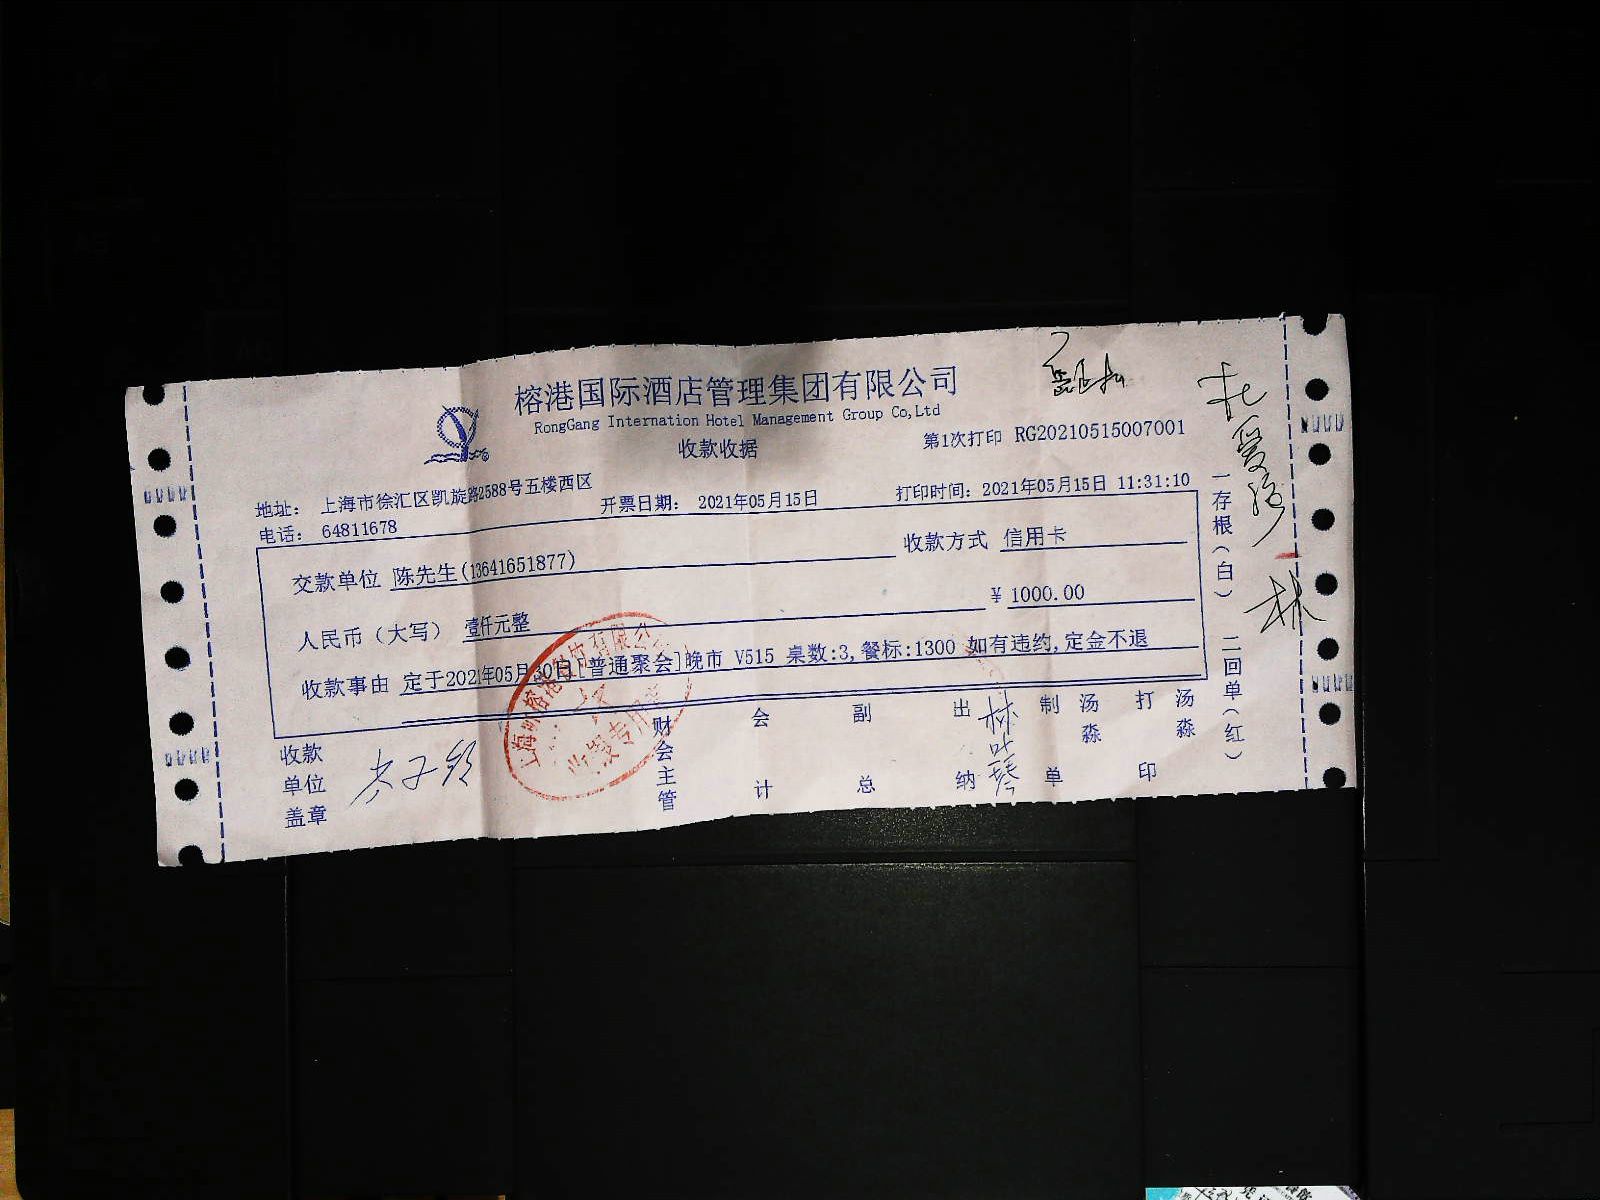 榕港国际酒店管理集团有限公司
RongGang Internation Hotel Management Group Co,Ltd
收款收据
第1次打印 RG20210515007001
地址: 上海市徐汇区凯旋路2588号五楼西区
电话: 64811678
开票日期: 2021年05月15日
打印时间: 2021年05月15日 11:31:10
交款单位 陈先生(13641651877)
收款方式 信用卡
人民币(大写) 壹仟元整
¥ 1000.00
收款事由 定于2021年05月30日[普通聚会]晚市 V515 桌数:3,餐标:1300 如有违约,定金不退
收款单位盖章
财会主管
会计
副总
出纳
林叶琴
制单
汤淼
打印
汤淼
一存根(白) 二回单(红)
林